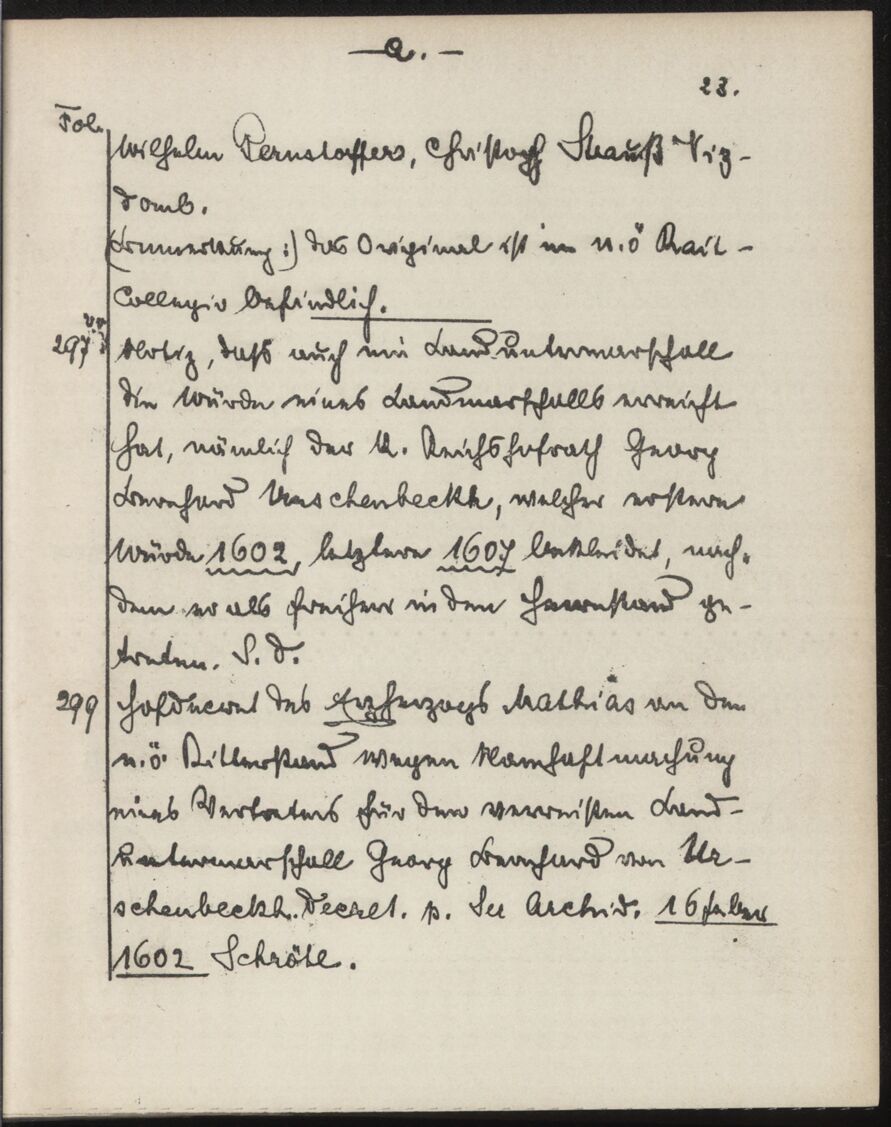 — a. —
23.
Fol.
Wilhelm Pernstorffer, Christoph Strauß Viz-
domb.
(Anmerkung:) das Original ist im n.ö Rait-
Collegio befindlich.
297 vo Notiz, daß auch ein Landuntermarschall
die Würde eines Landmarschalls erreicht
hat, nämlich der k. Reichshofrath Georg
Bernhard Urschenbeckh, welcher erstere
Würde 1602, letztere 1607 bekleidet, nach-
dem er als Freiherr in den Herrenstand ge-
treten. S. d.
299 Hofdecret des Erzherzogs Mathias an den
n.ö. Ritterstand wegen Namhaftmachung
eines Vertreters für den verreisten Land-
untermarschall Georg Bernhard von Ur-
schenbeckh. Decret. p. Ser Archid. 16
1602 Schröttl.